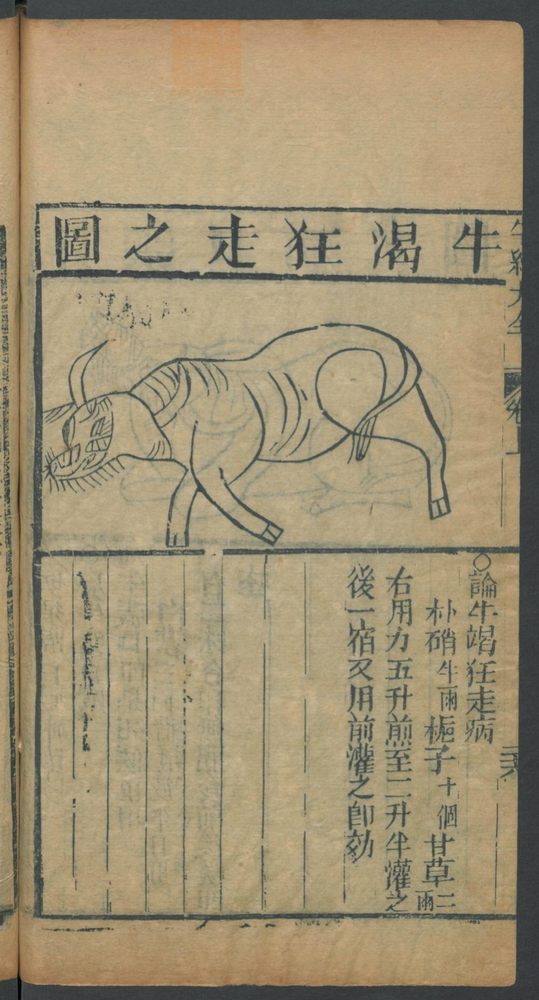 牛渴狂走之圖
○論牛竭狂走病
朴硝半兩梔子十個甘草二兩
右用力五升煎至二升半灌之
後一宿又用前灌之卽効